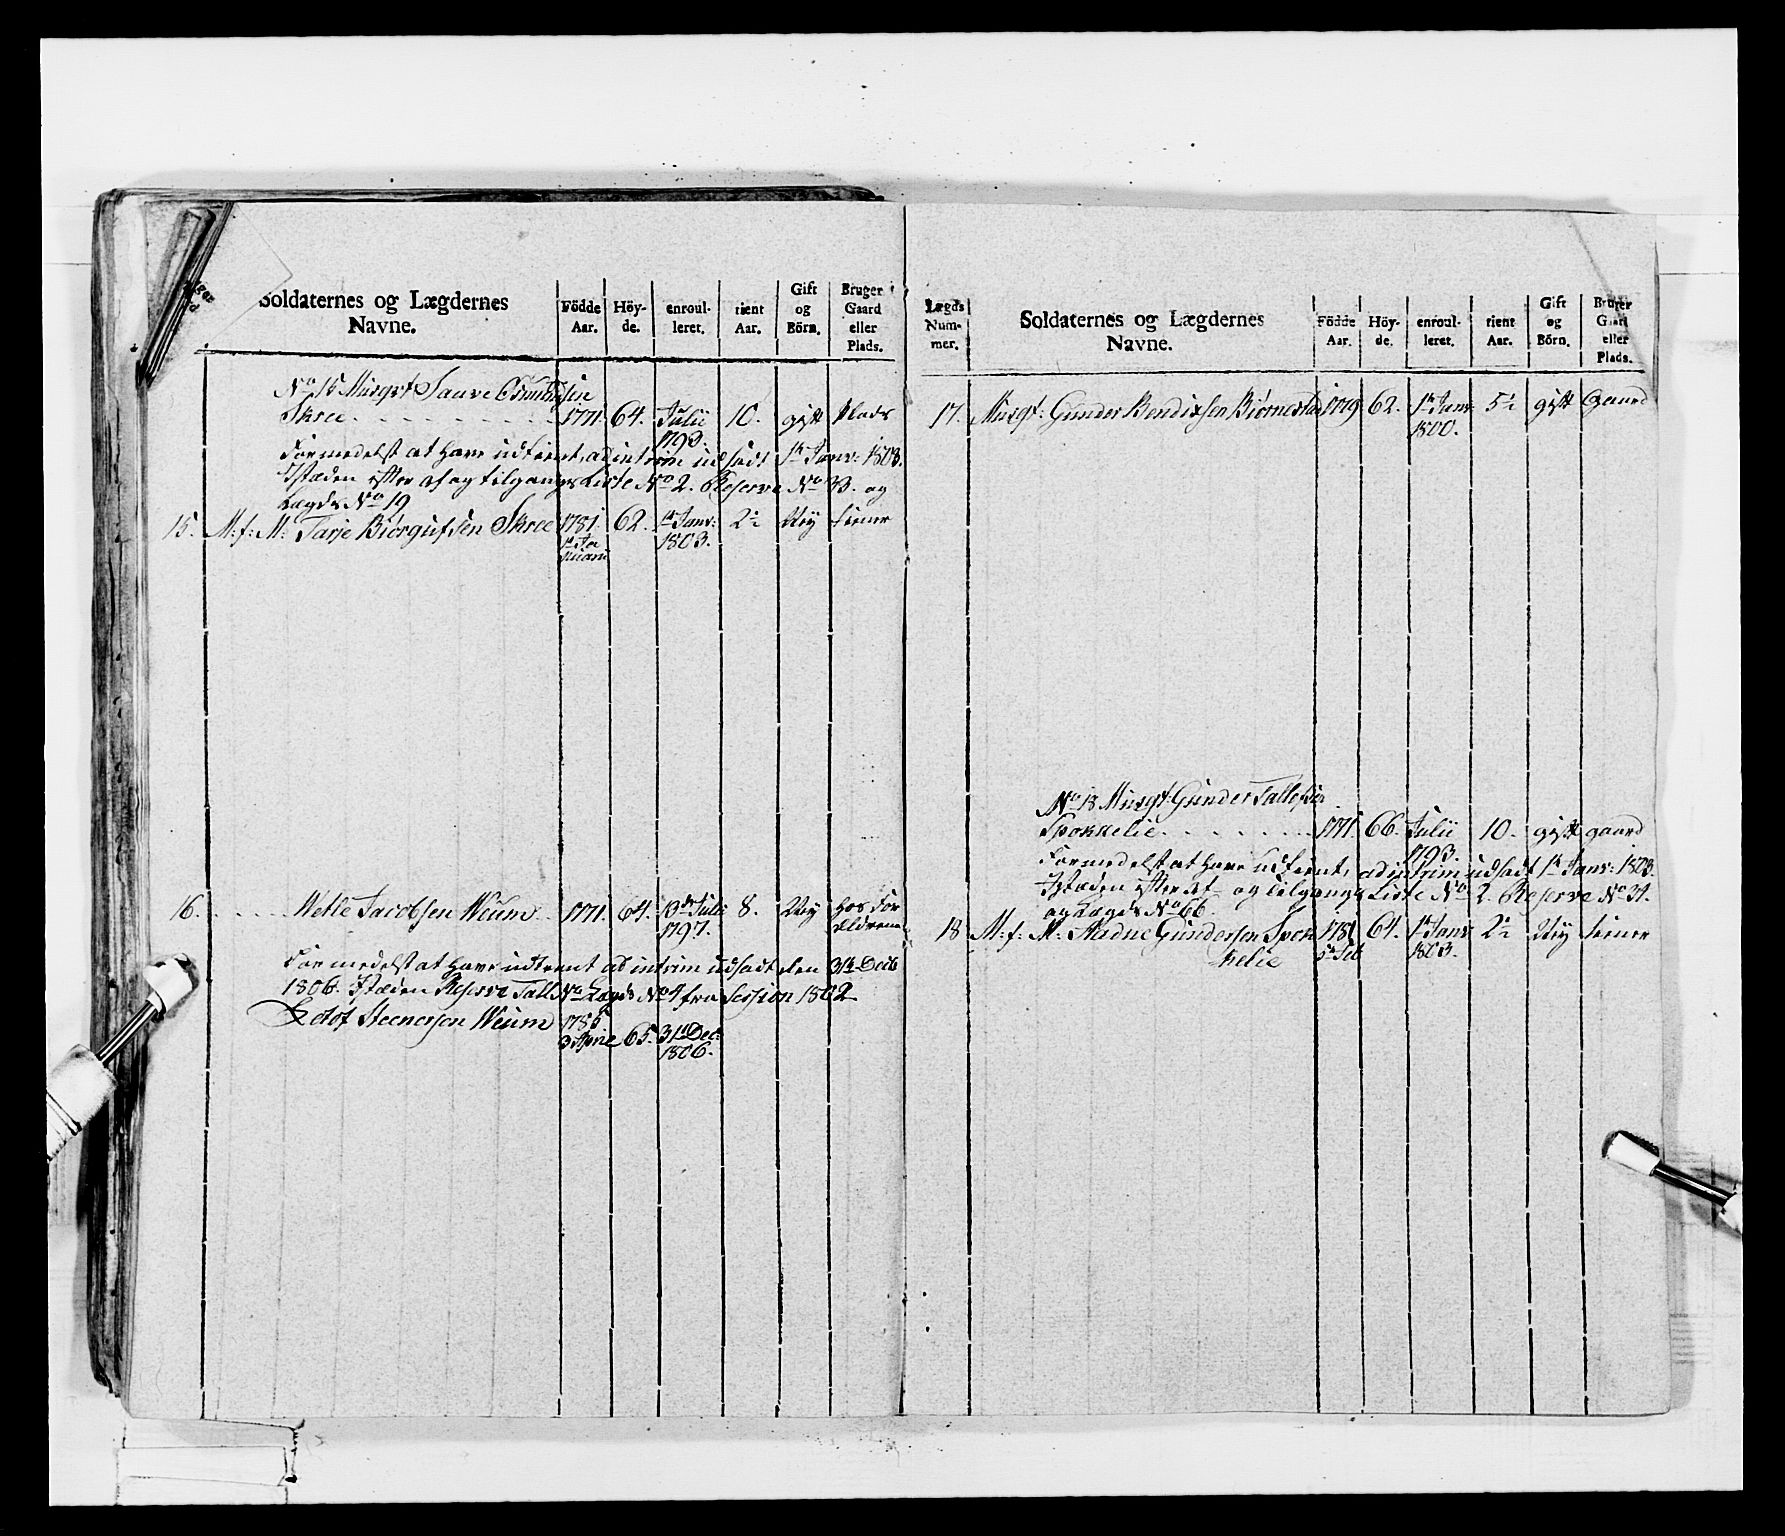 Soldaternes og Lægdernes
Navne.
Födde
Aar.
Höy-
de.
enroul-
leret.
tient
Aar.
Gift
og
Börn.
Bruger
Gaard
eller
Plads.
No 15 Musqt Saave
Skree . . . 1771. 64. Julii 10. gift Plads
1793.
Formedelst at have udtient, ad intrim udsadt 1te Janv: 1803.
Istæden efter af og tilgangs Liste No 2. Reserve No 33. og
Lægds No 19
15. M:f:M: Tarje Biörgufsen Skree 1781. 62. 1te Janv: 2½ Uig tiener
1803.
16. . . . Wetle Jacobsen Weum . . 1771. 64. 13de Julii 8. Uig hos For
1797. Eldrene
Formedelst at have udtient ad intrim udsadt den 31te Decb
1806. Istæden Reserve Tall No Lægds No 4 fra Session 1802
Lolof Steenersen Weum 1785.
3 Aprile 65. 31te Dec:
1806.
Lægds
Num-
mer.
Soldaternes og Lægdernes
Navne.
Födde
Aar.
Höy-
de.
enroul-
leret.
tient
Aar.
Gift
og
Börn.
Bruger
Gaard
eller
Plads.
17. Musqt: Gunder Bendixsen Biörnestad 1779 62. 1te Janv: 5½ gift Gaard
1800.
No 18 Musqt: Gunder Tallefsen
Spokkelie . . . 1771. 66. Julii 10. gift gaard
1793.
Formedelst at have udtient, ad intrim udsadt 1te Janv: 1803.
Istæden efter Af- og tilgangs Liste No 2. Reserve No 34.
og Lægds No 66.
18 M:f: M: Aadne Gundersen Spok 1781 64. 1te Janv 2½ Uig tiener
kelie 1803.